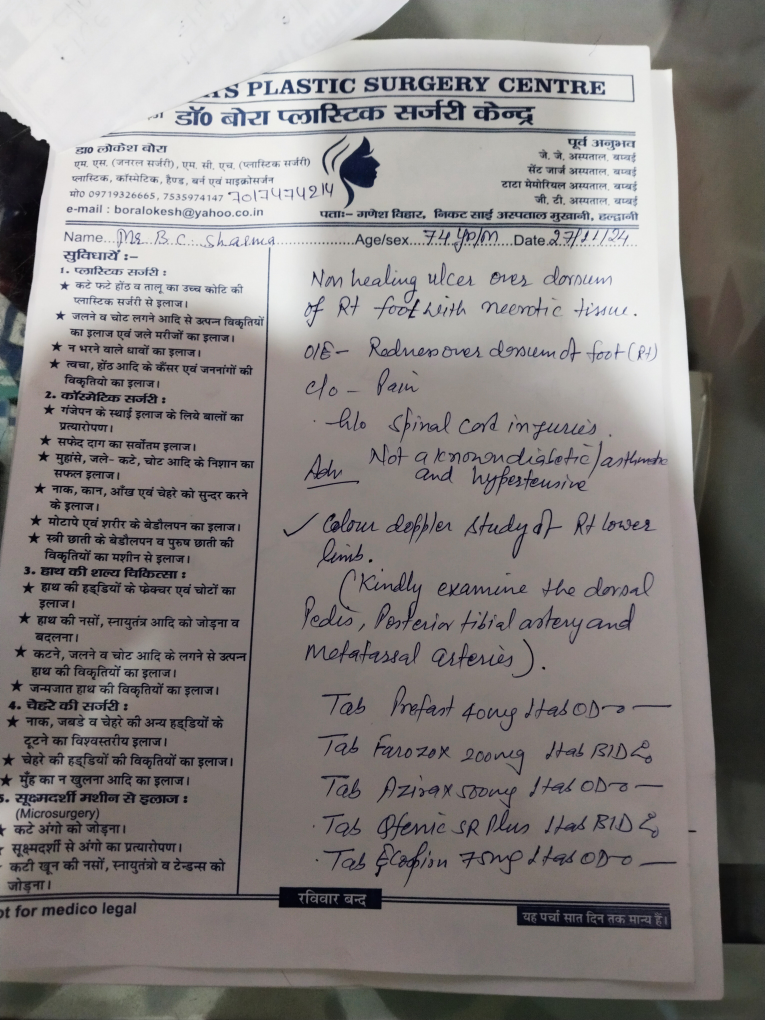 S PLASTIC SURGERY CENTRE
डॉ0 बोरा प्लास्टिक सर्जरी केन्द्र
डा0 लोकेश बोरा
एम. एस. (जनरल सर्जरी), एम. सी. एच. (प्लास्टिक सर्जरी)
प्लास्टिक, कॉस्मेटिक, हैण्ड, बर्न एवं माइक्रोसर्जन
मो0 09719326665, 7535974147 7017474214
e-mail : boralokesh@yahoo.co.in
पूर्व अनुभव
जे. जे. अस्पताल, बम्बई
सेंट जार्ज अस्पताल, बम्बई
टाटा मेमोरियल अस्पताल, बम्बई
जी. टी. अस्पताल, बम्बई
पताः- गणेश विहार, निकट साई अस्पताल मुखानी, हल्द्वानी
Name Mr B.C. Sharma Age/sex 74 yo/m Date 27/11/24
सुविधायें :-
1. प्लास्टिक सर्जरी :
★ कटे फटे होंठ व तालू का उच्च कोटि की
प्लास्टिक सर्जरी से इलाज।
★ जलने व चोट लगने आदि से उत्पन विकृतियों
का इलाज एवं जले मरीजों का इलाज।
★ न भरने वाले घावों का इलाज।
★ त्वचा, होंठ आदि के कैंसर एवं जननांगों की
विकृतियो का इलाज।
2. कॉस्मेटिक सर्जरी :
★ गंजेपन के स्थाई इलाज के लिये बालों का
प्रत्यारोपण।
★ सफेद दाग का सर्वोतम इलाज।
★ मुहांसे, जले- कटे, चोट आदि के निशान का
सफल इलाज।
★ नाक, कान, आँख एवं चेहरे को सुन्दर करने
के इलाज।
★ मोटापे एवं शरीर के बेडौलपन का इलाज।
★ स्त्री छाती के बेडौलपन व पुरुष छाती की
विकृतियों का मशीन से इलाज।
3. हाथ की शल्य चिकित्सा :
★ हाथ की हड्डियों के फेक्चर एवं चोटों का
इलाज।
★ हाथ की नसों, स्नायुतंत्र आदि को जोड़ना व
बदलना।
★ कटने, जलने व चोट आदि के लगने से उत्पन्न
हाथ की विकृतियों का इलाज।
★ जन्मजात हाथ की विकृतियों का इलाज।
4. चेहरे की सर्जरी :
★ नाक, जबड़े व चेहरे की अन्य हड्डियों के
टूटने का विश्वस्तरीय इलाज।
★ चेहरे की हड्डियों की विकृतियों का इलाज।
★ मुँह का न खुलना आदि का इलाज।
5. सूक्ष्मदर्शी मशीन से इलाज :
(Microsurgery)
कटे अंगो को जोड़ना।
सूक्ष्मदर्शी से अंगो का प्रत्यारोपण।
कटी खून की नसों, स्नायुतंत्रो व टेन्डन्स को
जोड़ना।
Non healing ulcer over dorsum
of Rt foot with necrotic tissue.
O/E- Redness over dorsum of foot (Rt)
c/o - Pain
h/o spinal cord injuries.
Adv Not a known diabetic/asthmatic
and hypertensive
✓ Colour doppler study of Rt lower
limb.
(Kindly examine the dorsal
Pedis, Posterior tibial artery and
metatarsal arteries).
Tab Prefast 40mg 1tab OD
Tab Farozox 200mg 1tab BID
Tab Azirax 500mg 1tab OD
Tab Ofenic SR Plus 1tab BID
Tab Ecospion 75mg 1tab OD
रविवार बन्द
ot for medico legal
यह पर्चा सात दिन तक मान्य हैं।